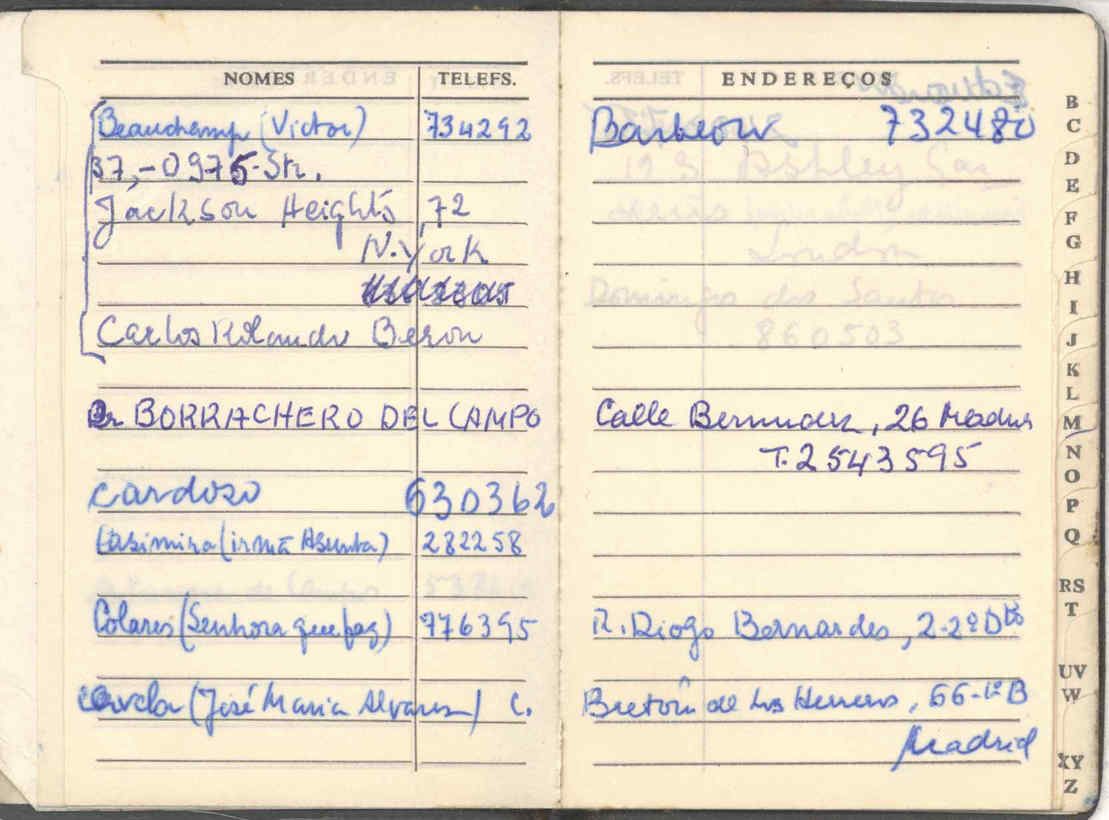 NOMES TELEFS.
Beauchamp (Victor) 734292
37,-0975-Str.
Jackson Heights, 72
N. York
Carlos Rolando Beron
Dr BORRACHERO DEL CAMPO
Cardoso 630362
Casimira (irmã Asunta) 282258
Colares (Senhora que faz) 776395
(José Maria Alvarez) C.
ENDEREÇOS
732480
Calle Bermudez, 26 Madrid
T. 2543595
R. Diogo Bernardes, 2-2º Dtº
Breton de los Herreros, 66-1º B
Madrid
B
C
D
E
F
G
H
I
J
K
L
M
N
O
P
Q
RS
T
UV
W
XY
Z